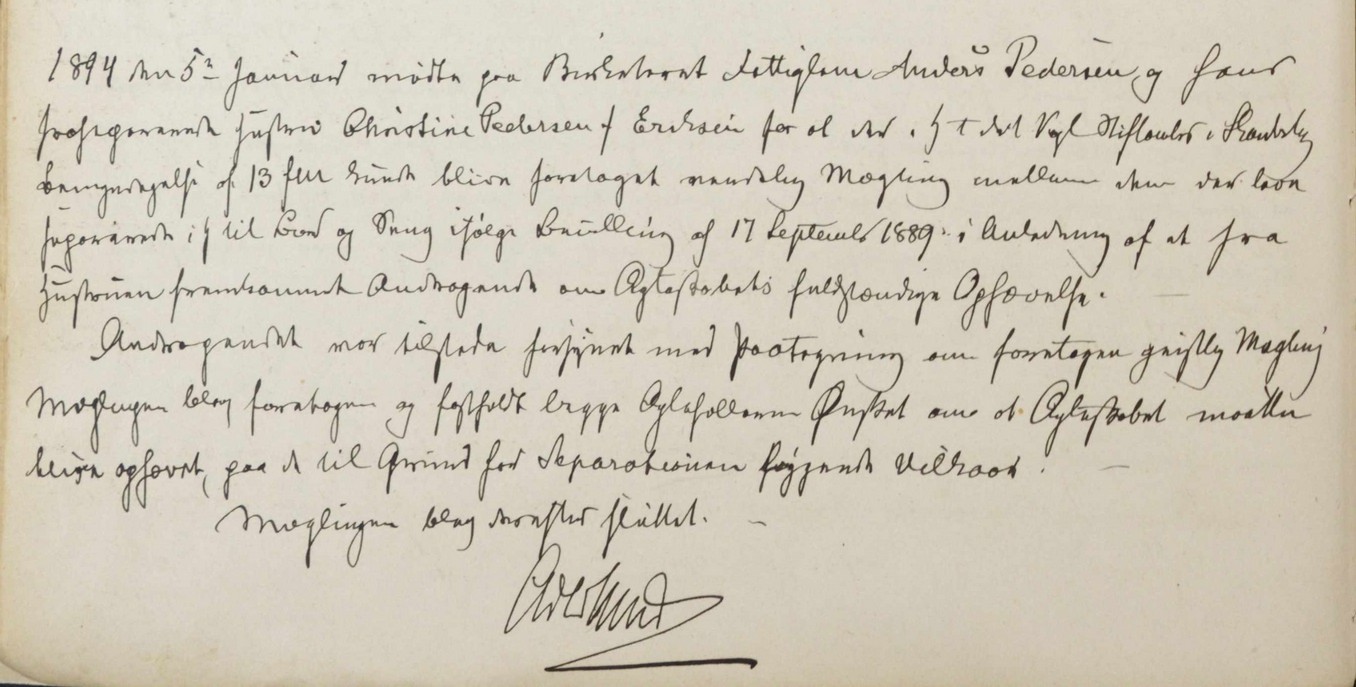 1894 den 5te Januar mødte paa Birketinget Fattiglem Anders Pedersen og hans
fraseparerede Hustru Christine Pedersen f Eriksen for at der i H t det Kgl Stiftamts
Bemyndigelse af 13 f M kunde blive foretaget verdslig Mægling mellem dem der leve
separerede i H til Bord og Seng ifølge Bevilling af 17 Septembr 1889 i Anledning af et fra
Hustruen fremkommet Andragende om Ægteskabets fuldstændige Ophævelse.
Andragendet var tilstede forsynet med Paategning om foretagen geistlig Mægling
Mæglingen blev foretagen og fastholdt begge Ægtefællerne Ønsket om at Ægteskabet maatte
blive ophævet, paa de til Grund for Separationen liggende Vilkaar.
Mæglingen blev derefter sluttet.